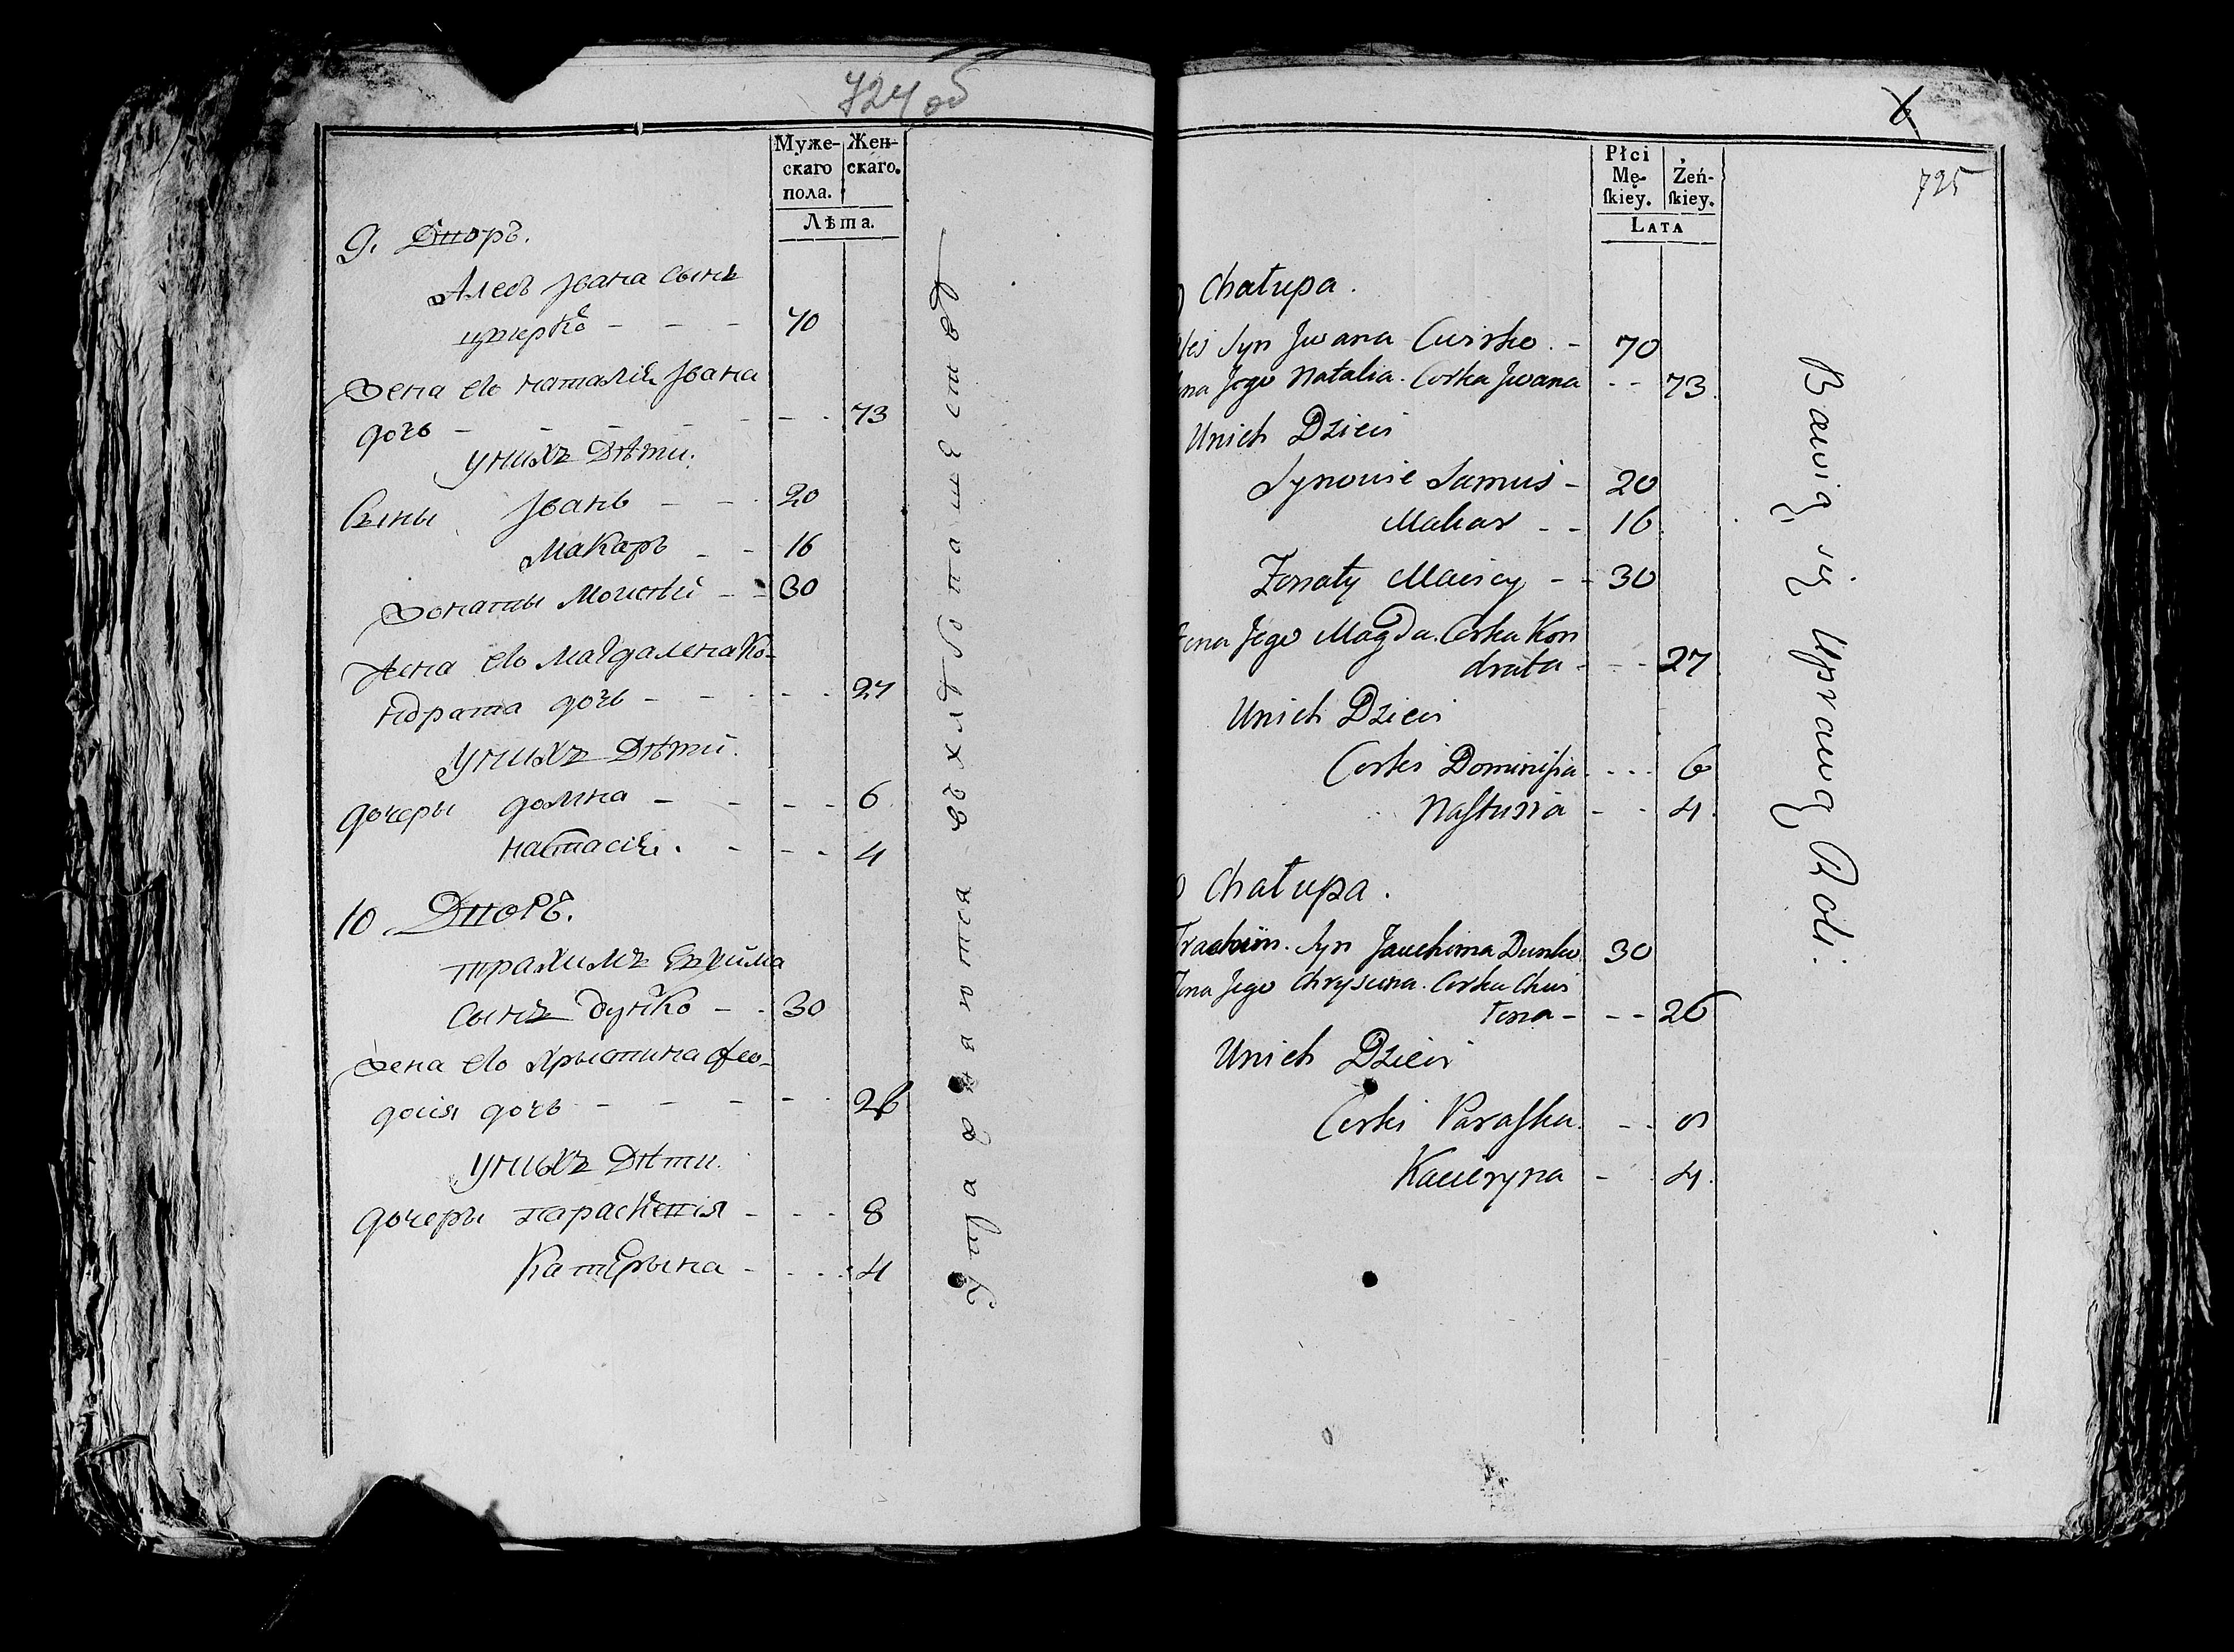 724 об
Муже-
скаго
пола.
Жен-
скаго.
Лѣта.
9. Дворъ.
Алесь Jвана сынъ
цвирко - - - 70
Жена его наталія Jвана
дочь - - - - - - 73
у нихъ Дѣти:
Сыны Jванъ - - 20
Макаръ - - 16
Жонаты Моисей - - 30
Жена его Магдалена Ко-
ндрата дочь - - - - 27
у нихъ Дѣти.
дочеры домна - - - - 6
настасія. - - - 4
10 Дворъ.
трахимъ Ефима
сынъ дунко - - 30
Жена его Христина фео-
досія дочь - - - - - 26
у нихъ Дѣти.
дочеры параскевія - - - 8
Катерына - - - - 4
Упражняются въ хлѣбопашествѣ
725
Płci
Mę-
ſkiey.
Żeń-
ſkiey.
LATA
Chałupa.
Syn Jwana Cwirko. - 70
Jego Natalia. Corka Jwana - - 73
Unich Dzieci
Synowie Samuś - 20
Makar - - 16
Żonaty Maicey - - 30
Żona Jego Magda. Corka Kon
drata - - - 27
Unich Dzieci
Corki Dominisia - - - 6
Naſtusia - - 4.
Chałupa.
Syn Jauchima Dunko 30
Jego Chrystina. Corka
- - - 26
Unich Dzieci
Corki Paraſka. - - 8
Kacieryna - - 4.
Bawią się Uprawą Roli.